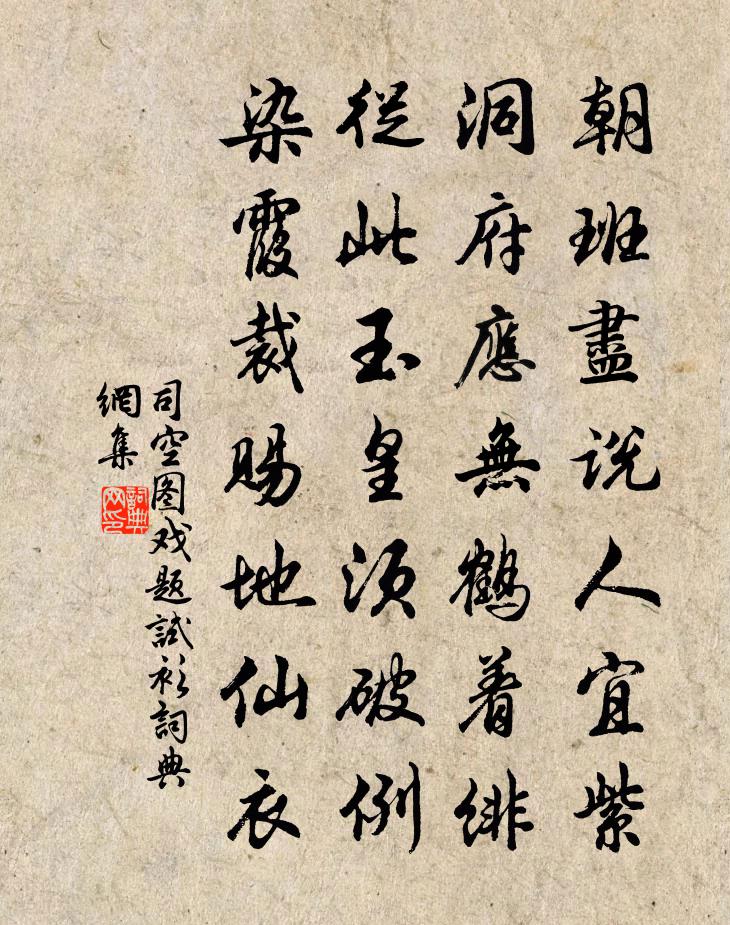 朝班盡説人宜紫
洞府應無鶴着緋
從此玉皇須破例
染霞裁賜地仙衣
司空图戏題試衫詞典
網集
詞典
网印